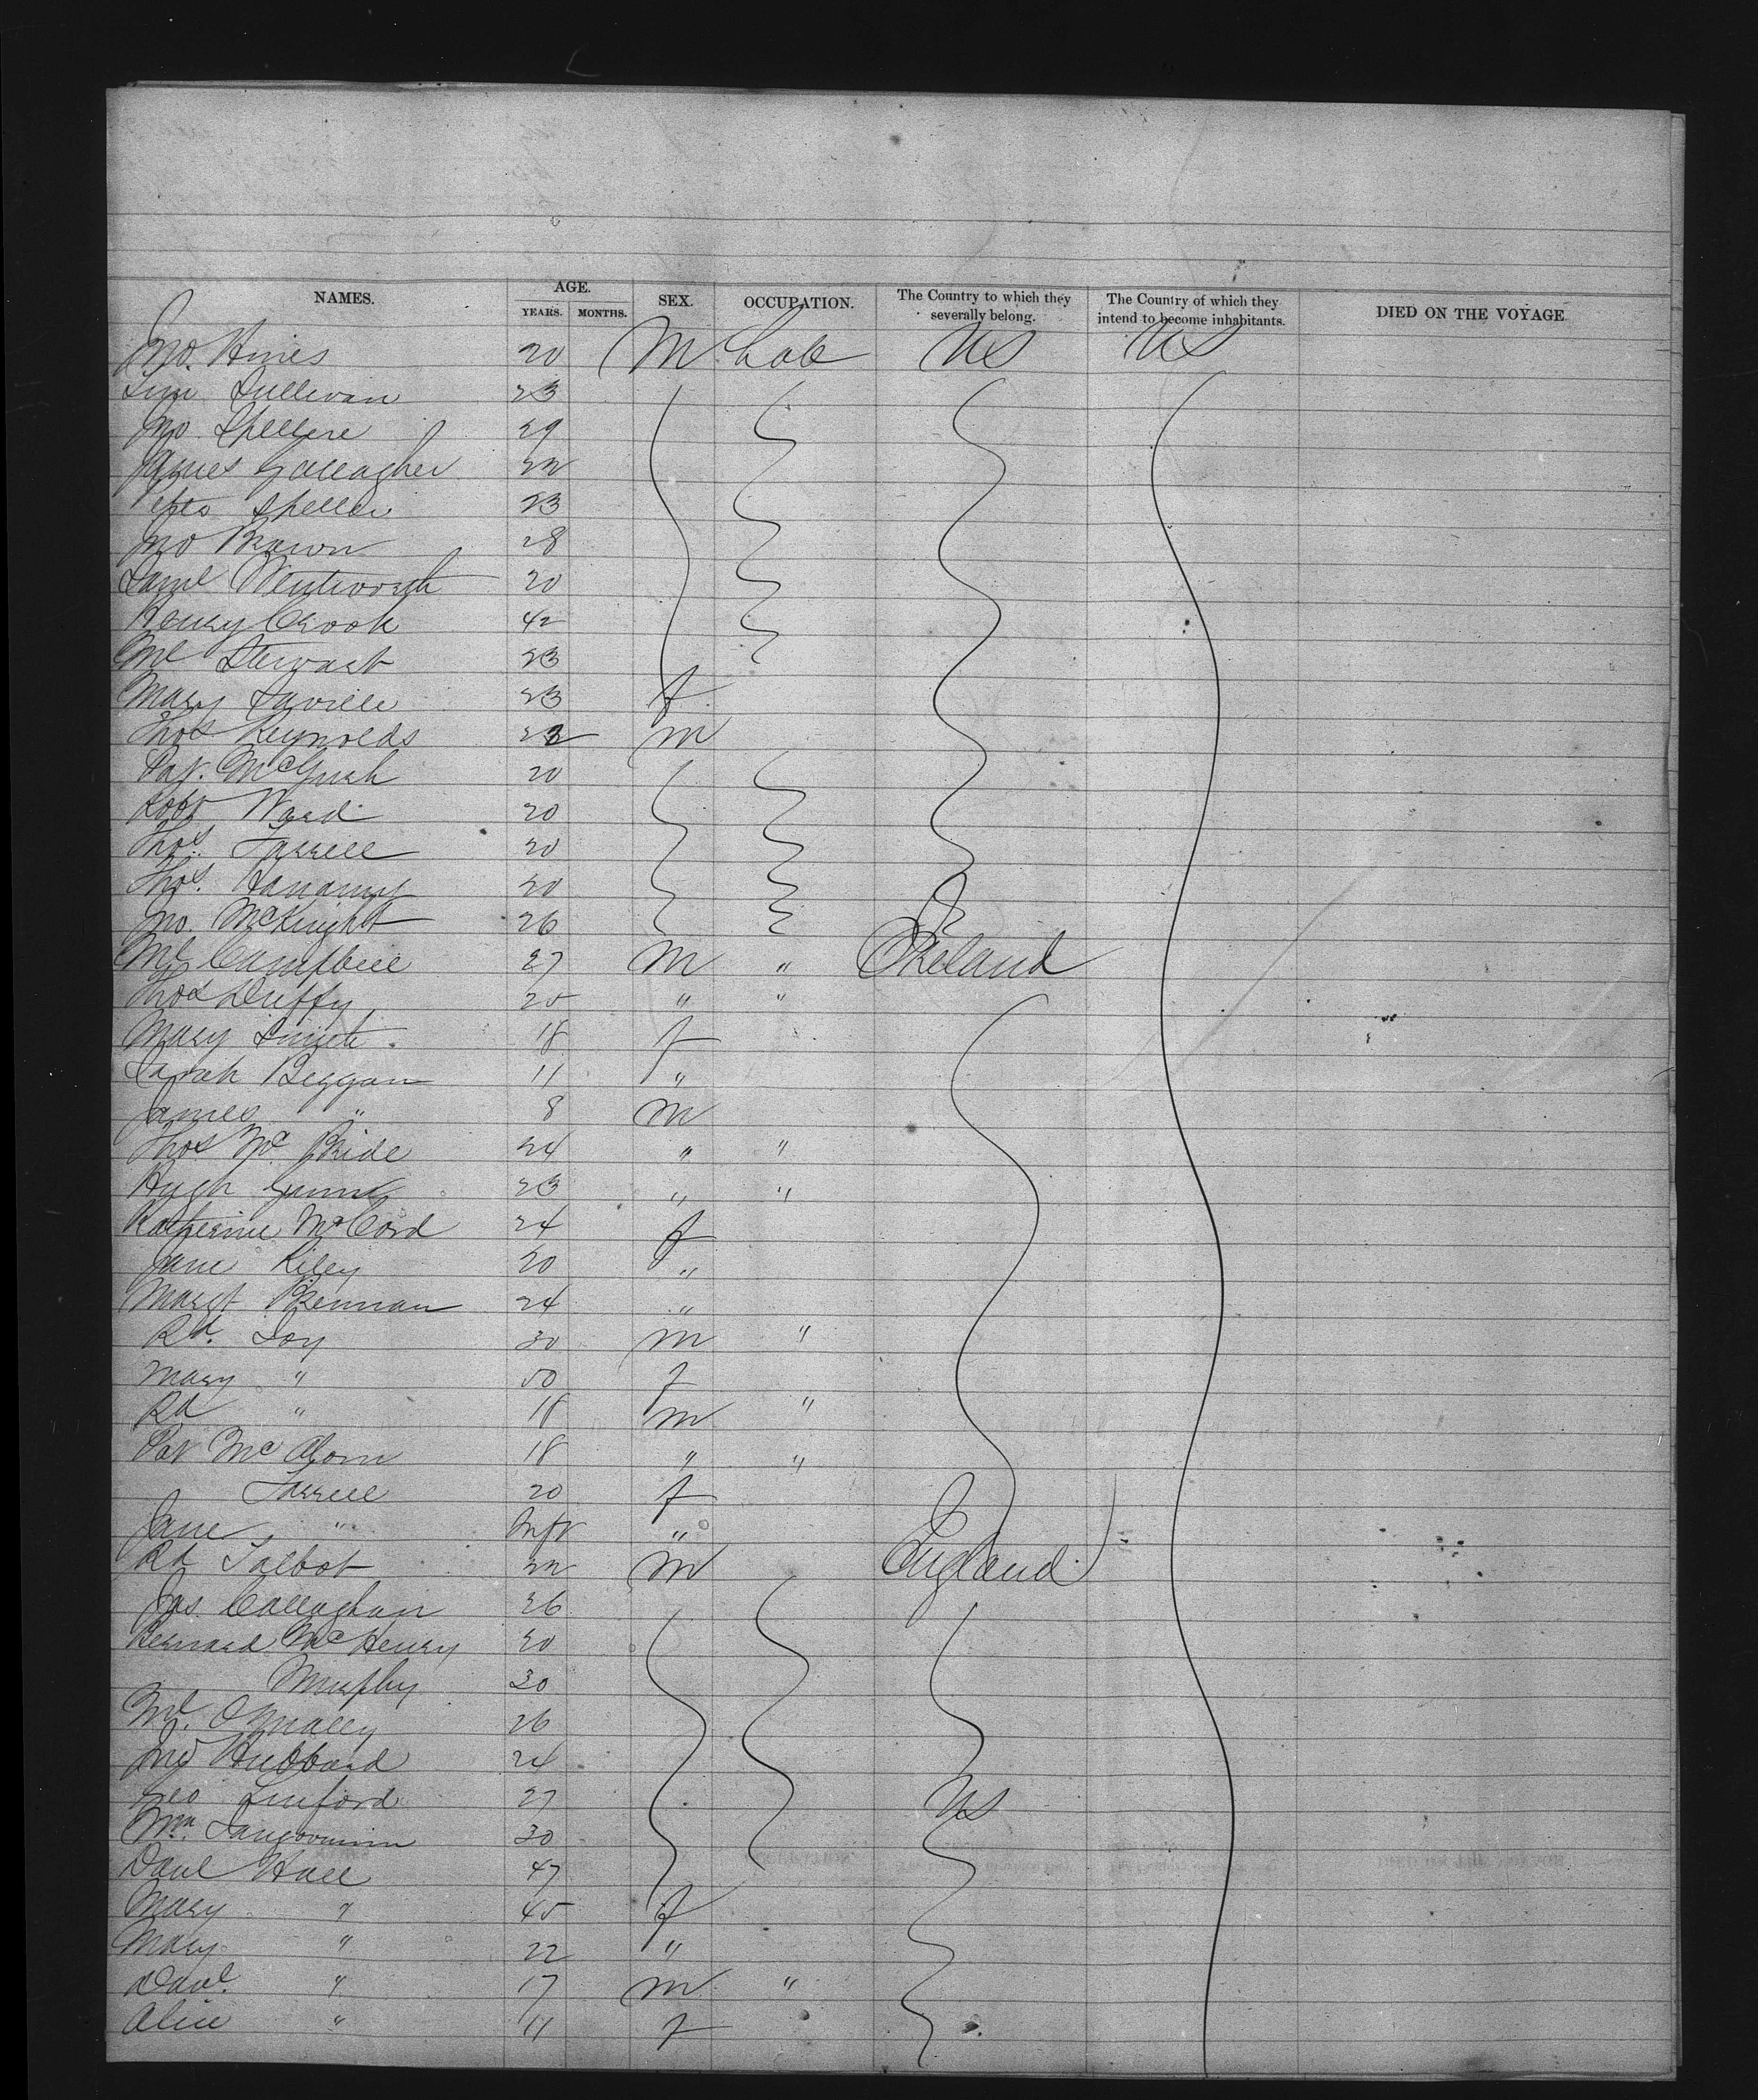 NAMES. AGE. YEARS. MONTHS. SEX. OCCUPATION. The Country to which they severally belong. The Country of which they intend to become inhabitants. DIED ON THE VOYAGE.
Jno. Hines 20 M Lab US US
Tim Sullivan 23
Jno 29
James Gallagher 22
23
Jno Brown 28
Saml Wentworth 20
Henry Crook 42
Ml Stewart 23
Mary Saville 23 f
Thos Reynolds m
Pat. 20
Robt Ward 20
Thos. Farrell 20
Thos. 20
Jno. McKnight 26
Ml Campbell 27 M " Ireland
Thos Duffy 25 " "
Mary Smith 18 f
Sarah Beggan 11 "
James " 8 m
Thos Mc Bride 24 " "
Hugh 23 " "
Katherine McCord 24 f
Jane Riley 20 "
Margt Brennan 24 "
Rd. 30 m "
Mary " 50 f
Rd " 18 m "
Pat 18 " "
Farrell 20 f
Jane " Inft "
Rd Talbot 22 m England
Jas. Callaghan 26
Bernard McHenry 20
Murphy 30
Ml. O'Malley 26
Jno Hubbard 24
Geo Linford 27 US
Wm. 30
Danl Hall 47
Mary " 45 f
Mary " 22 "
Danl. " 17 m "
Alice " 11 f